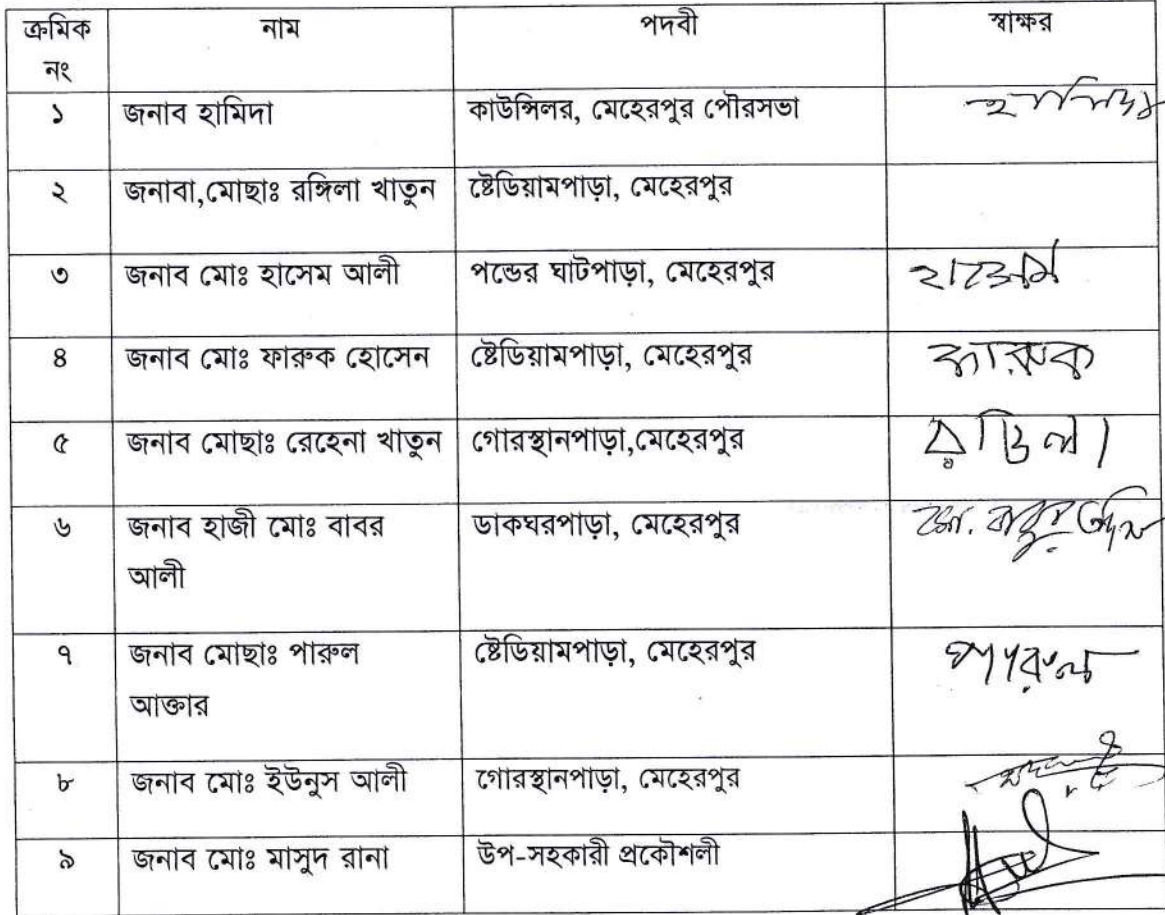 ক্রমিক নাম পদবী স্বাক্ষর
নং
১ জনাব হামিদা কাউন্সিলর, মেহেরপুর পৌরসভা হামিদা
২ জনাবা,মোছাঃ রঙ্গিলা খাতুন ষ্টেডিয়ামপাড়া, মেহেরপুর
৩ জনাব মোঃ হাসেম আলী পন্ডের ঘাটপাড়া, মেহেরপুর হাসেম
৪ জনাব মোঃ ফারুক হোসেন ষ্টেডিয়ামপাড়া, মেহেরপুর ফারুক
৫ জনাব মোছাঃ রেহেনা খাতুন গোরস্থানপাড়া,মেহেরপুর
৬ জনাব হাজী মোঃ বাবর ডাকঘরপাড়া, মেহেরপুর
আলী
৭ জনাব মোছাঃ পারুল ষ্টেডিয়ামপাড়া, মেহেরপুর পারুল
আক্তার
৮ জনাব মোঃ ইউনুস আলী গোরস্থানপাড়া, মেহেরপুর
৯ জনাব মোঃ মাসুদ রানা উপ-সহকারী প্রকৌশলী